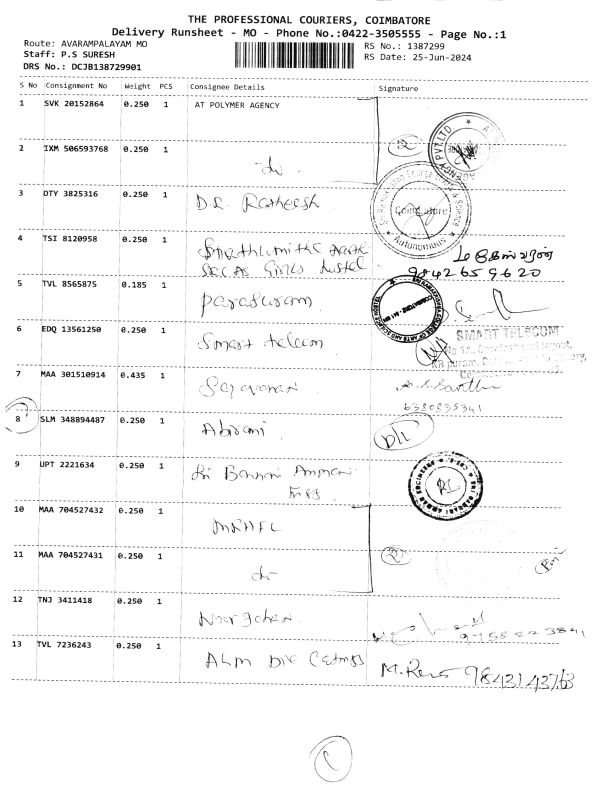 THE PROFESSIONAL COURIERS, COIMBATORE
Delivery Runsheet - MO - Phone No.:0422-3505555 - Page No.:1
Route: AVARAMPALAYAM MO
Staff: P.S SURESH
DRS No.: DCJB138729901
RS No.: 1387299
RS Date: 25-Jun-2024
S No Consignment No Weight PCS Consignee Details Signature
1 SVK 20152864 0.250 1 AT POLYMER AGENCY
2 IXM 506593768 0.250 1 do
3 OTY 3825316 0.250 1 D.R. Ratheesh
Coimbatore
Autonomous
4 TSI 8120958 0.250 1
Girls Hostel
மகேஸ்வரன்
9842659620
5 TVL 8565875 0.185 1 parasuram
6 EDQ 13561250 0.250 1 Smart telecom
SMART TELECOM
7 MAA 301510914 0.435 1 Saravanan
6380835341
8 SLM 348894487 0.250 1 Abirami
9 UPT 2221634 0.250 1 Sri Bannari Amman
10 MAA 704527432 0.250 1 MRHFL
11 MAA 704527431 0.250 1 do
12 TNJ 3411418 0.250 1 Noorjahan
13 TVL 7236243 0.250 1
M. Reno 9843143763